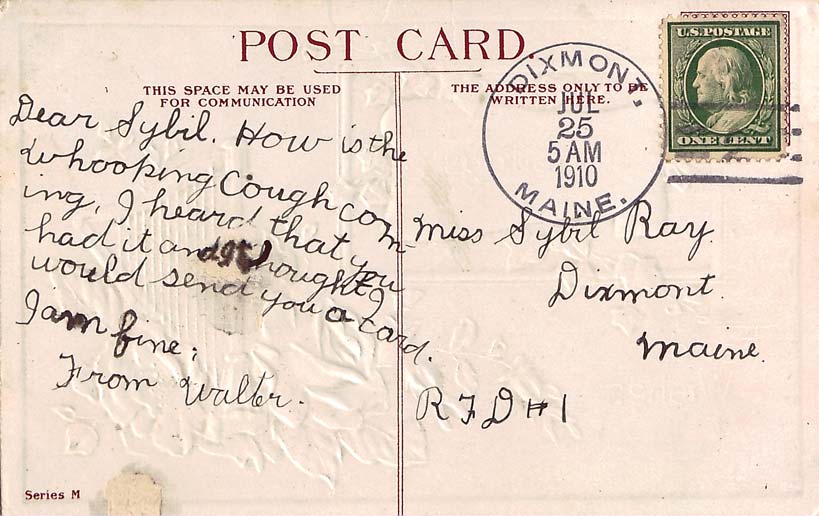 POST CARD.
THIS SPACE MAY BE USED
FOR COMMUNICATION
THE ADDRESS ONLY TO BE
WRITTEN HERE.
U.S. POSTAGE
ONE CENT
DIXMONT.
JUL
25
5 AM
1910
MAINE.
Dear Sybil. How is the
Whooping Cough com-
ing, I heard that you
had it and thought I
would send you a card.
I am fine;
From Walter.
Miss Sybil Ray.
Dixmont.
Maine.
R F D # 1
Series M